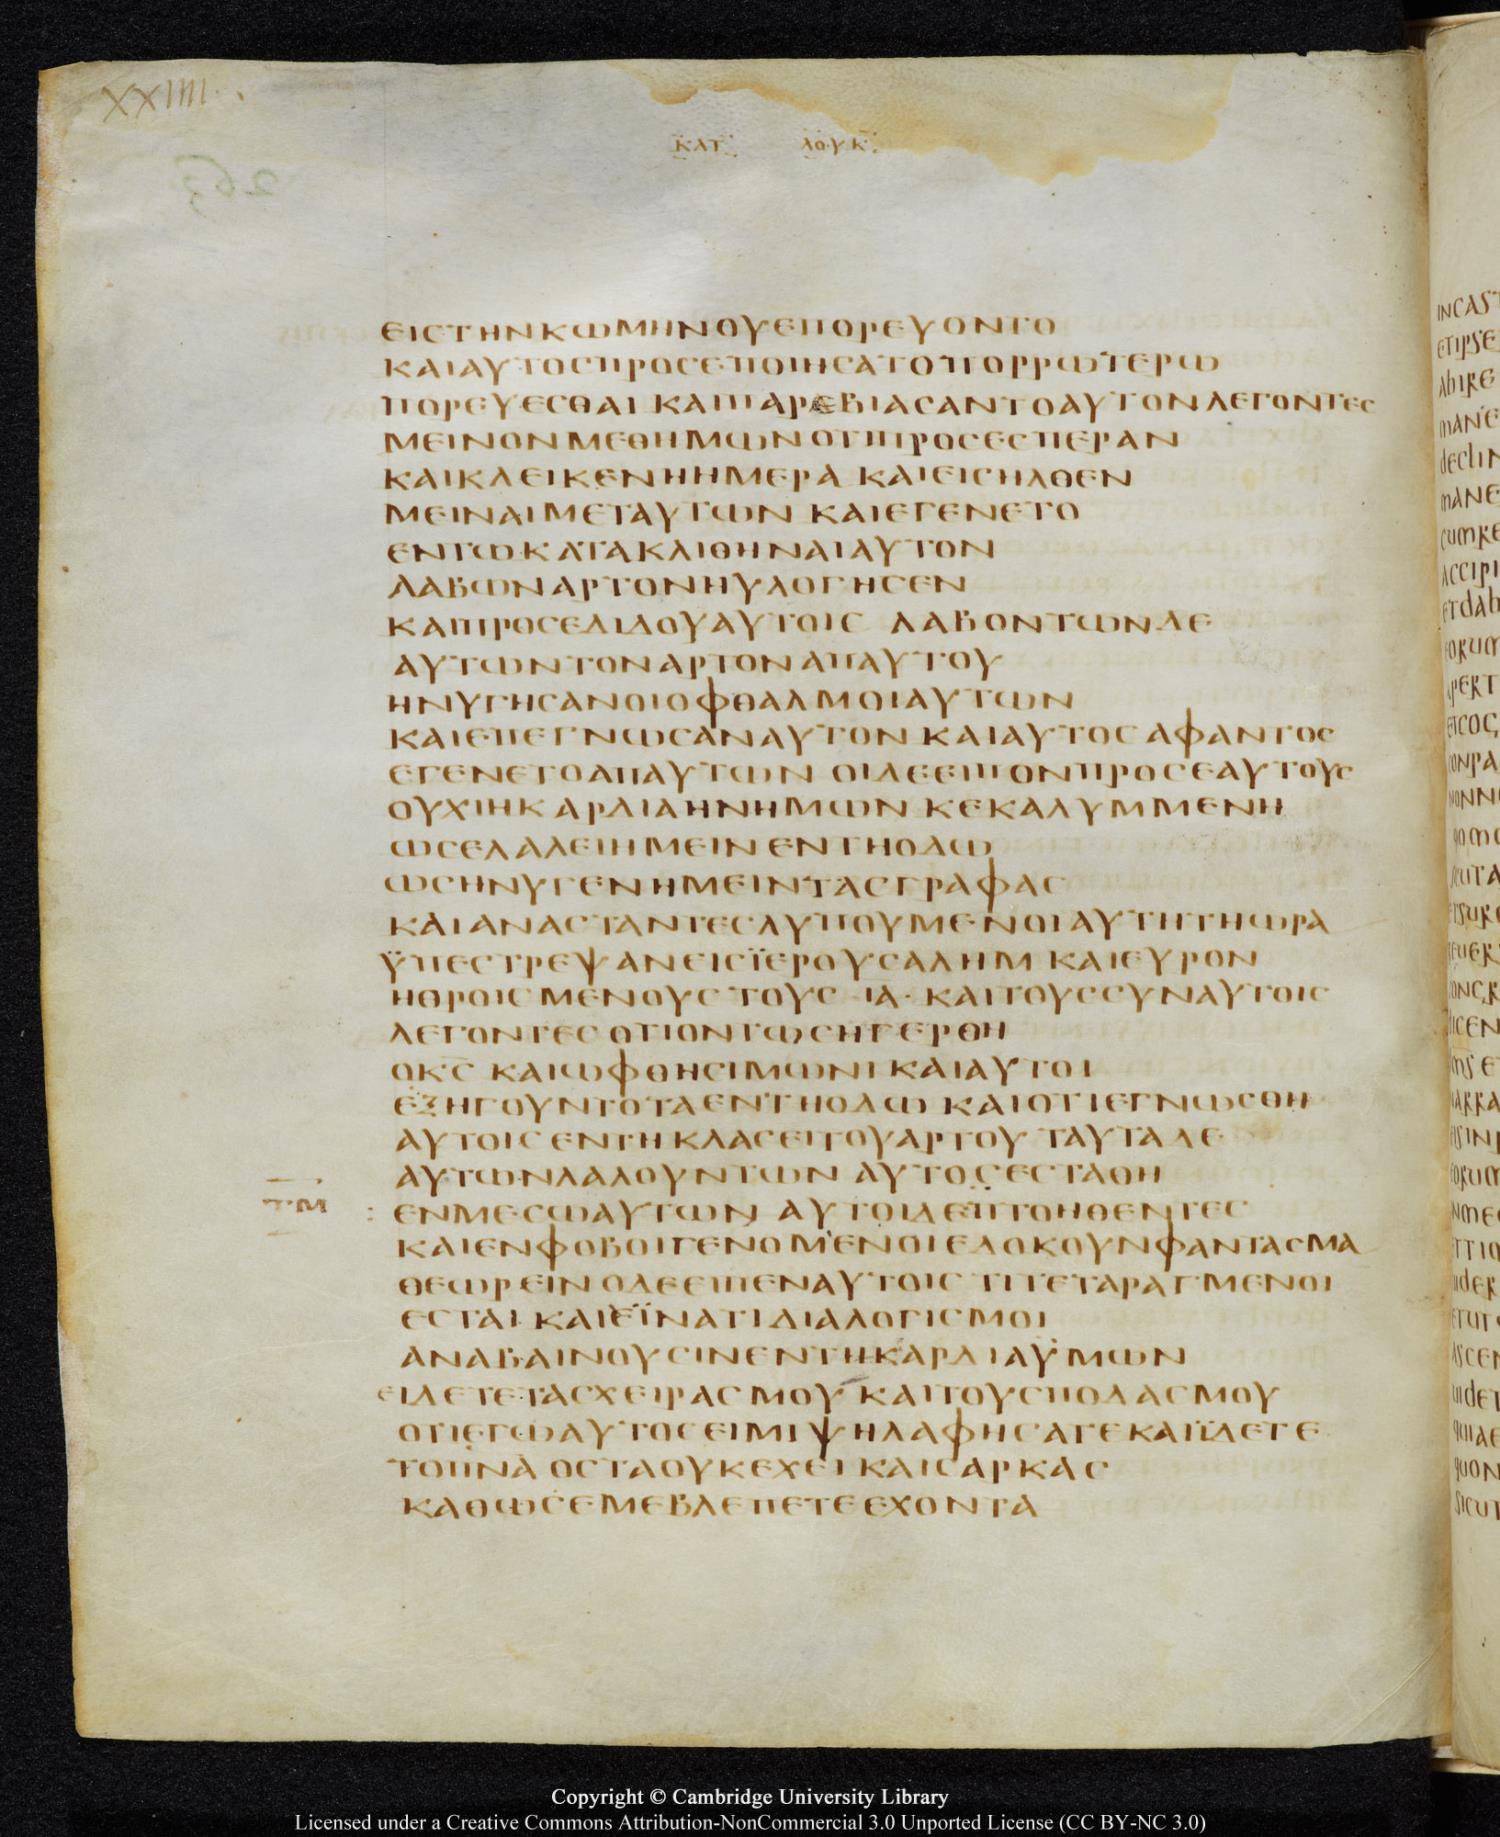 XXIIII
263
ΚΑΤ ΛΟΥΚ
ΕΙСΤΗΝΚΩΜΗΝΟΥΕΠΟΡΕΥΟΝΤΟ
ΚΑΙΑΥΤΟСΠΡΟСΕΠΟΙΗСΑΤΟΠΟΡΡΩΤΕΡΩ
ΠΟΡΕΥΕСΘΑΙ ΚΑΙΠΑΡΕΒΙΑСΑΝΤΟΑΥΤΟΝΛΕΓΟΝΤΕС
ΜΕΙΝΟΝΜΕΘΗΜΩΝΟΤΙΠΡΟСΕСΠΕΡΑΝ
ΚΑΙΚΛΕΙΚΕΝΗΗΜΕΡΑ ΚΑΙΕΙСΗΛΘΕΝ
ΜΕΙΝΑΙΜΕΤΑΥΤΩΝ ΚΑΙΕΓΕΝΕΤΟ
ΕΝΤΩΚΑΤΑΚΛΙΘΗΝΑΙΑΥΤΟΝ
ΛΑΒΩΝΑΡΤΟΝΗΥΛΟΓΗСΕΝ
ΚΑΙΠΡΟСΕΔΙΔΟΥΑΥΤΟΙС ΛΑΒΟΝΤΩΝΔΕ
ΑΥΤΩΝΤΟΝΑΡΤΟΝΑΠΑΥΤΟΥ
ΗΝΥΓΗСΑΝΟΙΟΦΘΑΛΜΟΙΑΥΤΩΝ
ΚΑΙΕΠΕΓΝΩСΑΝΑΥΤΟΝ ΚΑΙΑΥΤΟСΑΦΑΝΤΟС
ΕΓΕΝΕΤΟΑΠΑΥΤΩΝ ΟΙΔΕΕΙΠΟΝΠΡΟСΕΑΥΤΟΥС
ΟΥΧΙΗΚΑΡΔΙΑΗΝΗΜΩΝ ΚΕΚΑΛΥΜΜΕΝΗ
ΩСΕΛΑΛΕΙΗΜΕΙΝ ΕΝΤΗΟΔΩ
ΩСΗΝΥΓΕΝΗΜΕΙΝΤΑСΓΡΑΦΑС
ΚΑΙΑΝΑСΤΑΝΤΕСΛΥΠΟΥΜΕΝΟΙΑΥΤΗΤΗΩΡΑ
ΫΠΕСΤΡΕΨΑΝΕΙСΪΕΡΟΥСΑΛΗΜ ΚΑΙΕΥΡΟΝ
ΗΘΡΟΙСΜΕΝΟΥСΤΟΥС ·ΙΑ· ΚΑΙΤΟΥССΥΝΑΥΤΟΙС
ΛΕΓΟΝΤΕС ΟΤΙΟΝΤΩСΗΓΕΡΘΗ
ΟΚС ΚΑΙΩΦΘΗСΙΜΩΝΙ ΚΑΙΑΥΤΟΙ
ΕΞΗΓΟΥΝΤΟΤΑΕΝΤΗΟΔΩ ΚΑΙΟΤΙΕΓΝΩСΘΗ
ΑΥΤΟΙСΕΝΤΗΚΛΑСΕΙΤΟΥΑΡΤΟΥ ΤΑΥΤΑΔΕ
ΑΥΤΩΝΛΑΛΟΥΝΤΩΝ ΑΥΤΟСΕСΤΑΘΗ
ΤΜ : ΕΝΜΕСΩΑΥΤΩΝ ΑΥΤΟΙΔΕΠΤΟΗΘΕΝΤΕС
ΚΑΙΕΝΦΟΒΟΙΓΕΝΟΜΕΝΟΙΕΔΟΚΟΥΝΦΑΝΤΑСΜΑ
ΘΕΩΡΕΙΝΟΔΕΕΙΠΕΝΑΥΤΟΙС ΤΙΤΕΤΑΡΑΓΜΕΝΟΙ
ΕСΤΑΙ ΚΑΙΕΪΝΑΤΙΔΙΑΛΟΓΙСΜΟΙ
ΑΝΑΒΑΙΝΟΥСΙΝΕΝΤΗΚΑΡΔΙΑΫΜΩΝ
ΕΙΔΕΤΕΤΑСΧΕΙΡΑСΜΟΥ ΚΑΙΤΟΥСΠΟΔΑСΜΟΥ
ΟΤΙΕΓΩΑΥΤΟСΕΙΜΙΨΗΛΑΦΗСΑΤΕΚΑΙΪΔΕΤΕ
ΤΟΠΝΑ ΟСΤΑΟΥΚΕΧΕΙΚΑΙСΑΡΚΑС
ΚΑΘΩСΕΜΕΒΛΕΠΕΤΕΕΧΟΝΤΑ
Copyright © Cambridge University Library
Licensed under a Creative Commons Attribution-NonCommercial 3.0 Unported License (CC BY-NC 3.0)